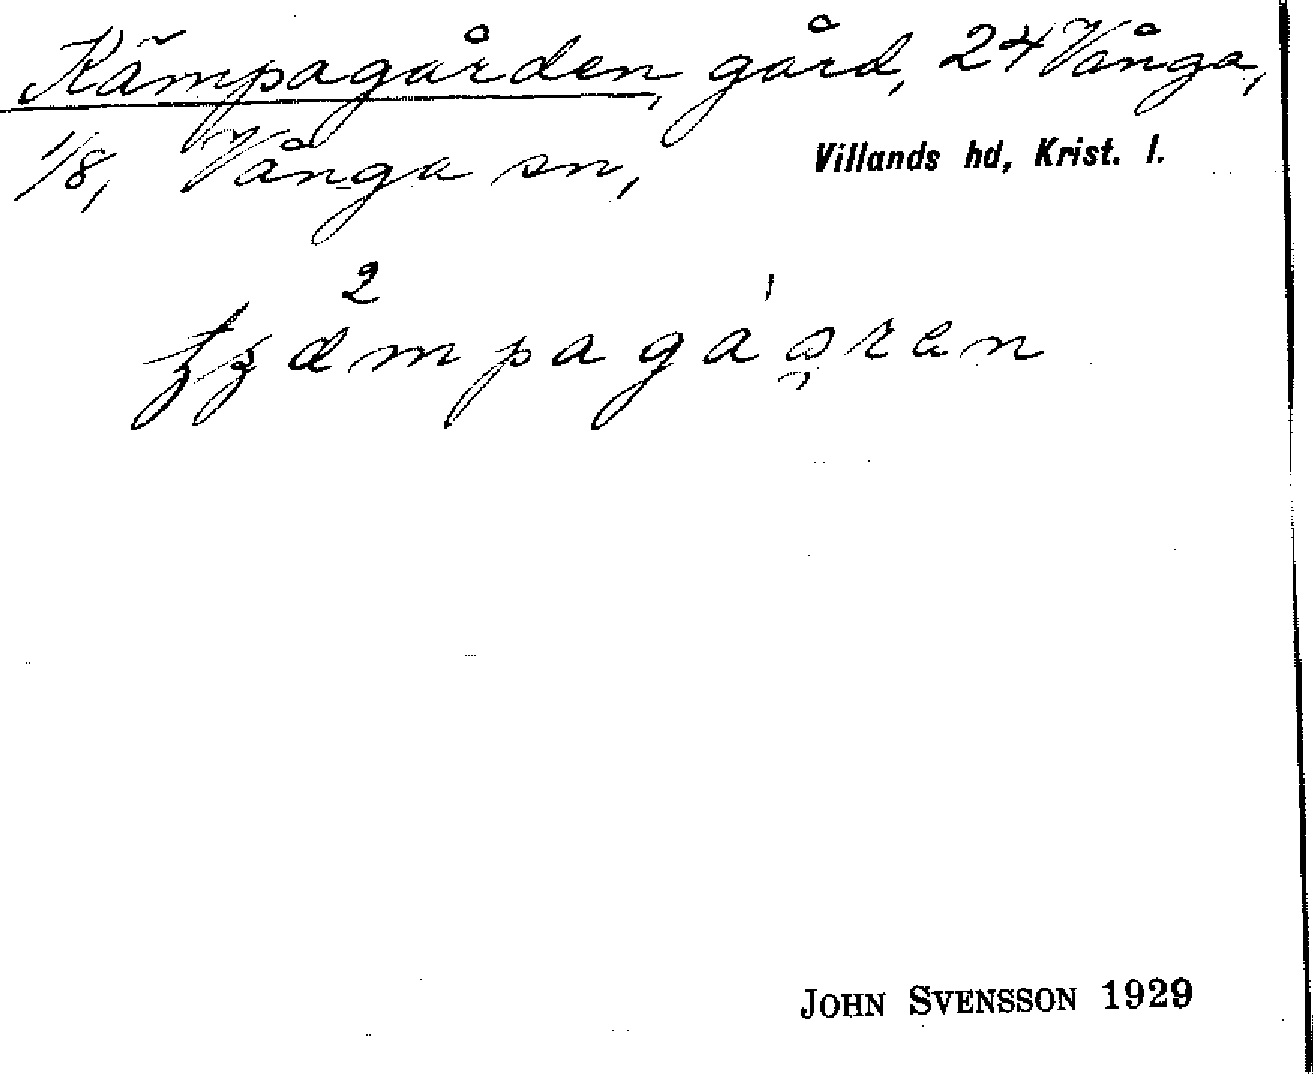 Kämpagården, gård, 24 Vånga,
1/8, Vånga sn, Villands hd, Krist. l.
JOHN SVENSSON 1929